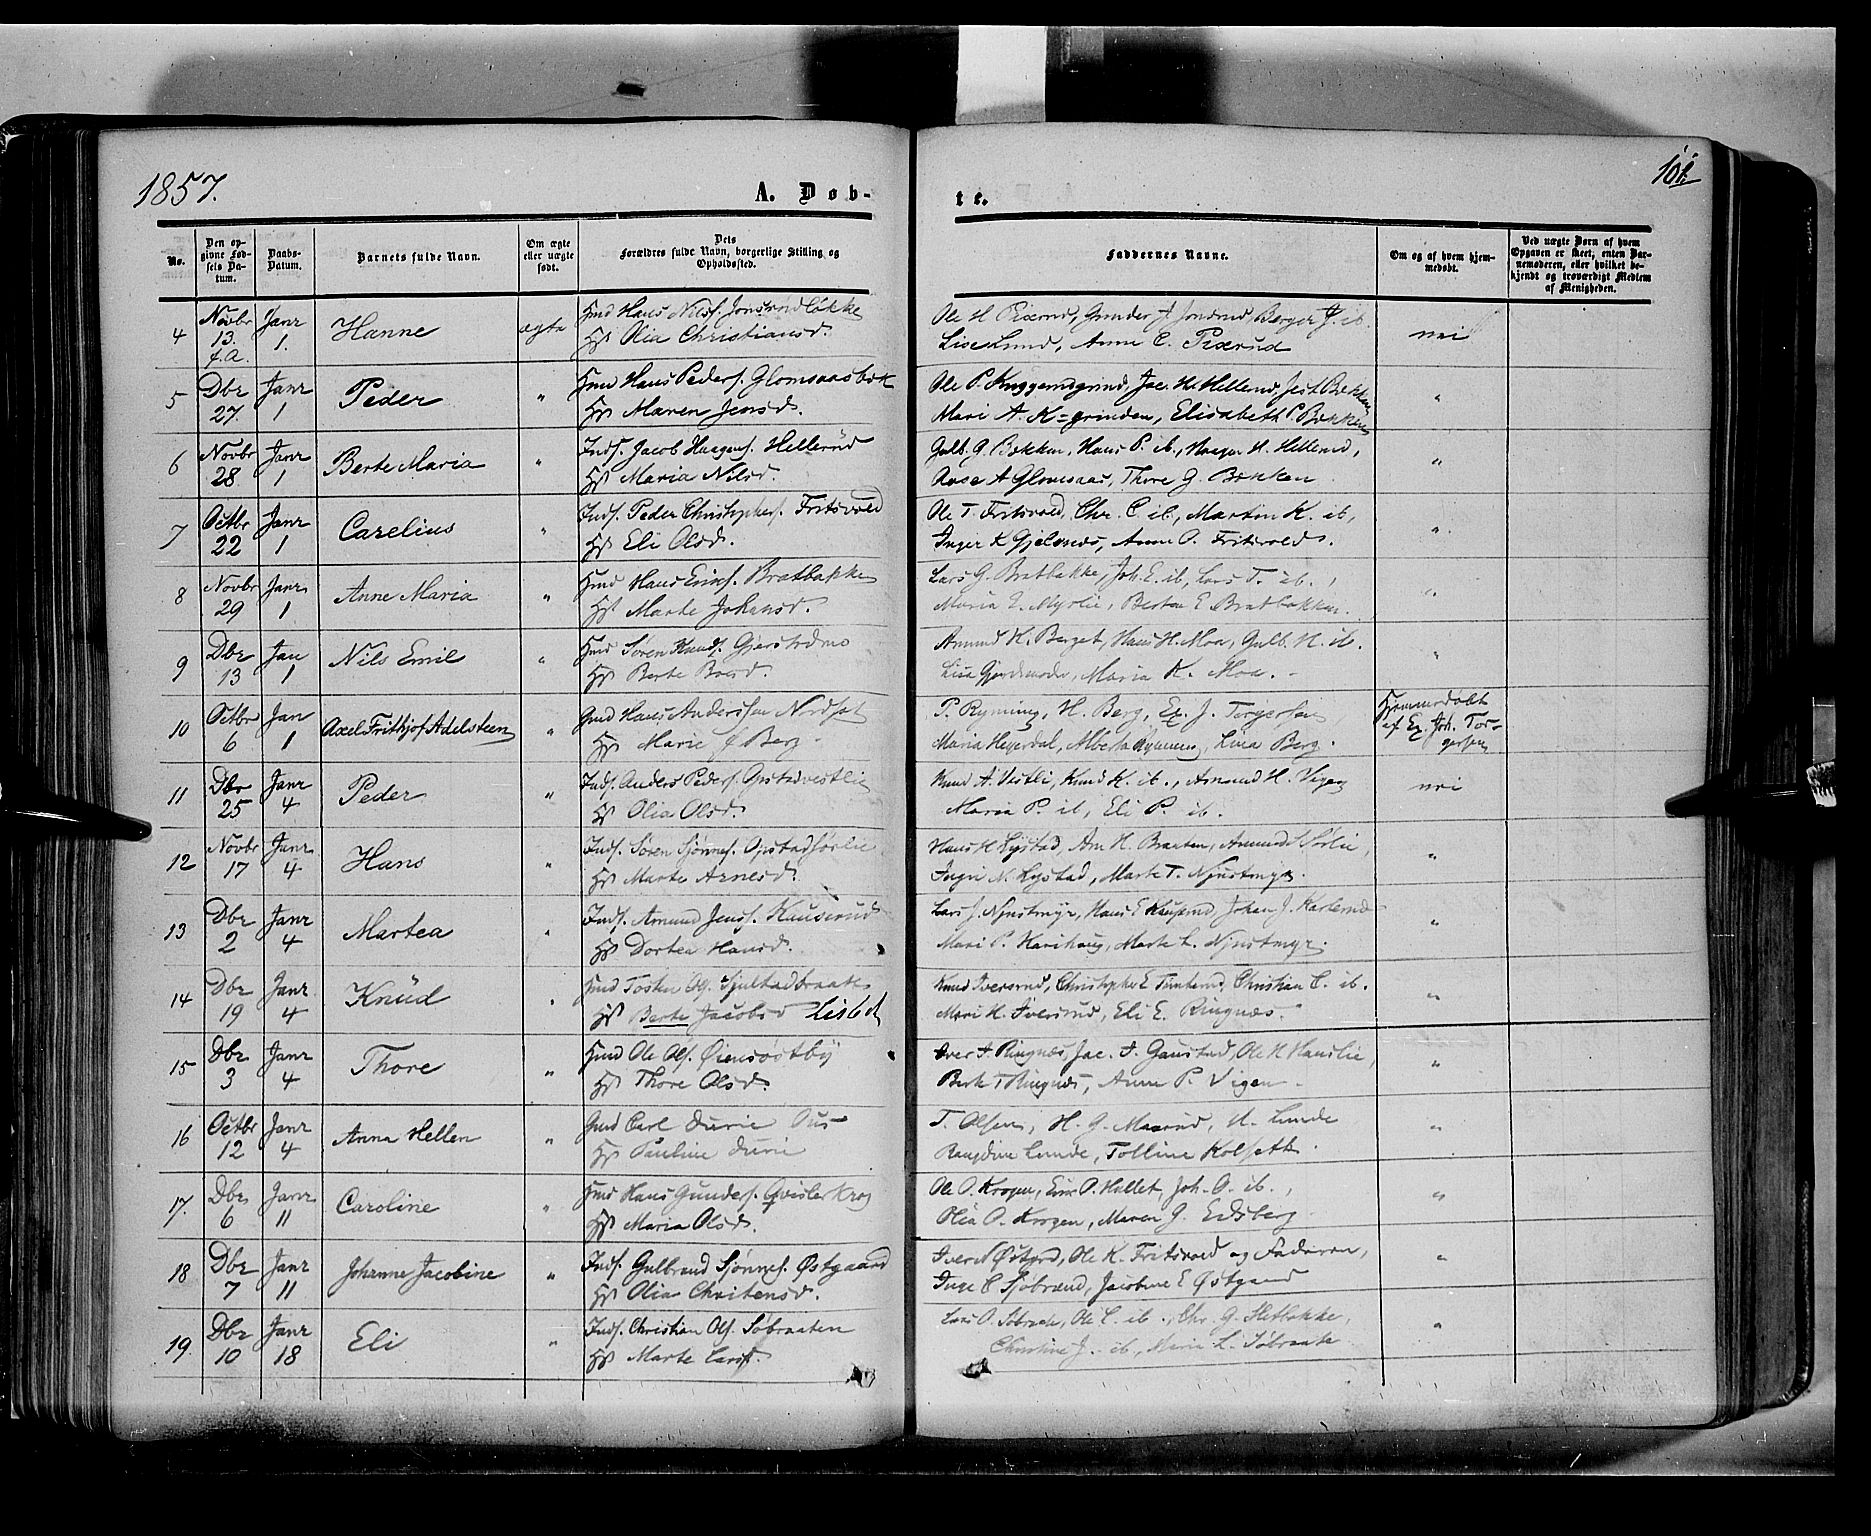 1857.
A. Døb-
te.
101.
No.
Den op-
givne Fød-
sels Da-
tum.
Daabs-
Datum.
Barnets fulde Navn.
Om ægte
eller uægte
født.
Dets
Forældres fulde Navn, borgerlige Stilling og
Opholdssted.
Faddernes Navne.
Om og af hvem hjem-
medøbt.
Ved uægte Børn af hvem
Opgaven er skeet, enten Bar-
nemoderen, eller hvilket be-
kjendt og troværdigt Medlem
af Menigheden.
4 Novbr 13. f.A. Janr 1. Hanne ægte
Hans Nilss. Jonsrudløkke
Olia Christiansd.
Lise Lund, Anne E. Pixrud
nei
5 Dbr 27. Janr 1 Peder "
Hans Peders. Glomsaasbak
Maren Jensd.
Mari A. K-grinden, Elisabeth P. Bakken
"
6 Novbr 28 Janr 1 Berte Maria "
Inds. Jacob Haagens. Hellerud
Maria Nilsd.
Gulb. G. Bakken, Hans P. ib., Haagen H. Hellerud,
Aase A Glomsaas, Thore G. Bakken
"
7 Octbr 22 Janr 1 Carelius "
Inds. Peder Christophers. Fritsvold
Eli Olsd.
Ole T. Fritsvold, Chr. C. ib., Martin K. ib,
Inger K Gjelsnes, Anne O. Fritsvold.
"
8 Novbr 29 Janr 1 Anne Maria "
Hans Erics. Bratbakke
Marte Johansd.
Lars G. Bratbakke, Joh. E. ib, Lars T. ib.,
Maria Myrlie, Berte E Bratbakken.
"
9 Dbr 13 Jan 1 Nils Emil "
Søren Knuds.
Berte
Amund H. Berget, Hans H. Moa, Gulb. H. ib.
Lisa Maria K. Moa.
"
10 Octbr 6 Jan 1 Axel Frithjof Adelsteen "
Hans Anderssen Nordset
Marie f Berg
P. Rynning, H. Berg, Ex. J. Torgersen
Maria Heyerdal, Alberta Rynning, Lina Berg.
Hjemmedøbt
af Ex. Joh. Tor-
gersen
11 Dbr 25 Janr 4 Peder "
Inds. Anders Peders. Opstadvestlie
Olia Olsd.
Knud A. Vestli, Knud K. ib., Amund H. Vigen
Maria P. ib, Eli P. ib.
nei
12 Novbr 17 Janr 4 Hans "
Inds. Søren Sjønnes. Opstadsørlie
Marte Arnesd.
Hans H Lystad, Arn H. Braaten, Amund Sørlie,
Ingri N. Lystad, Marte T. Njustmyr.
"
13 Dbr 2 Janr 4 Martea "
Inds. Amund Jenss. Kauserud
Dortea Hansd.
Lars J. Njustmyr, Hans E Kauserud, Johan J.
Mari P. Harihaug, Marte L. Njustmyr.
"
14 Dbr 19 Janr 4 Knud "
Tosten Ols. Sjulstadbraate
Berte Jacobsd Lisbet
Knud Iversrud, Christopher E Christian C. ib.
Mari H. Iversrud, Eli E. Ringnæs.
"
15 Dbr 3 Janr 4 Thore "
Ole Ols. Øiensøstby
Thore Olsd.
Iver A Ringnæs, Jac. J. Gaustad, Ole H Hauslie,
Berte T Ringnæs, Anne P. Vigen
"
16 Octbr 12 Janr 4 Anna Hellen "
Carl Durie Ous
Pauline Durie
T. Olsen, H. G. Maarud, H. Lunde
Ragdine Lunde, Tolline Kolset
"
17. Dbr 6 Janr 11 Caroline "
Hans Gunders. Qvislerkrog
Maria Olsd.
Ole O. Krogen, Eric P. Hallet, Joh. O. ib.,
Olia O. Krogen, Maren G. Eidsberg
"
18 Dbr 7 Janr 11 Johanne Jacobine "
Inds. Gulbrand Sjønnes. Østgaard
Olia Christensd.
Iver N Østgrd, Ole K. Fritsvold og Faderen,
Inge C Sjøbrænd, Jacobine E Østgaard
"
19. Dbr 10 Janr 18 Eli "
Inds. Christian Ols. Søbraaten
Marte Larsd.
Lars O. Søbraate, Ole C. ib., Chr. G. Sletbakke,
Christine J. ib, Maria L. Søbraate
"